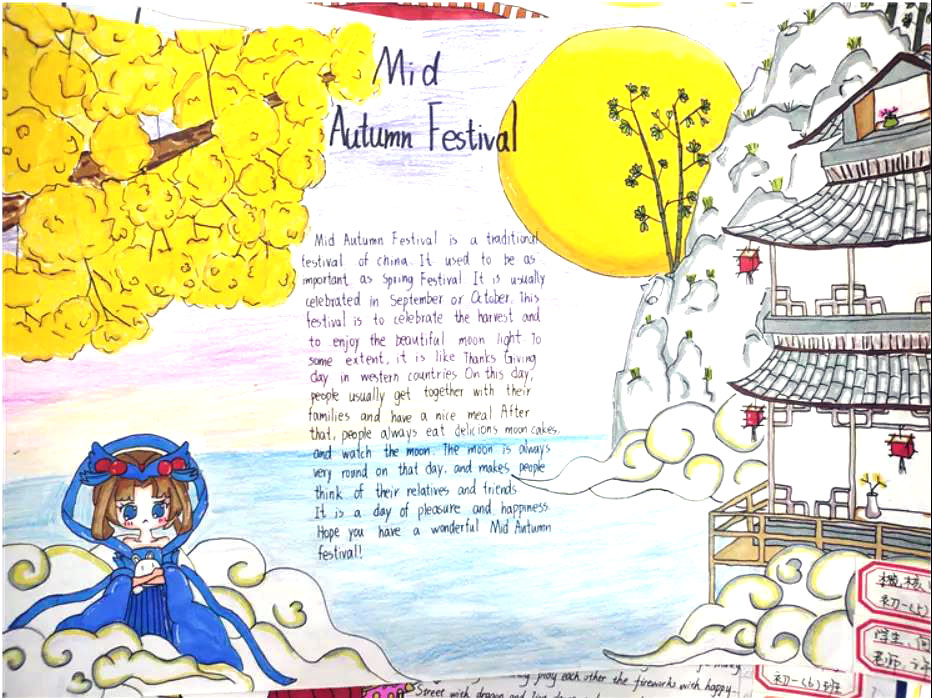 Mid
Autumn Festival
Mid Autumn Festival is a traditional
festival of china. It used to be as
important as Spring Festival It is usually
celebrated in September or October. This
festival is to celebrate the harvest and
to enjoy the beautiful moon light To
some extent, it is like Thanks Giving
day in western countries On this day,
people usually get together with their
families and have a nice meal After
that, people always eat delicions moon cakes,
and watch the moon. The moon is always
very round on that day. and makes people
think of their relatives and friends
It is a day of pleasure and happiness
Hope you have a wonderful Mid Autumn
festival!
初一(5)
学生:
老师:
初一(6)班
play each other the fireworks with happy
Street with dragon and lion